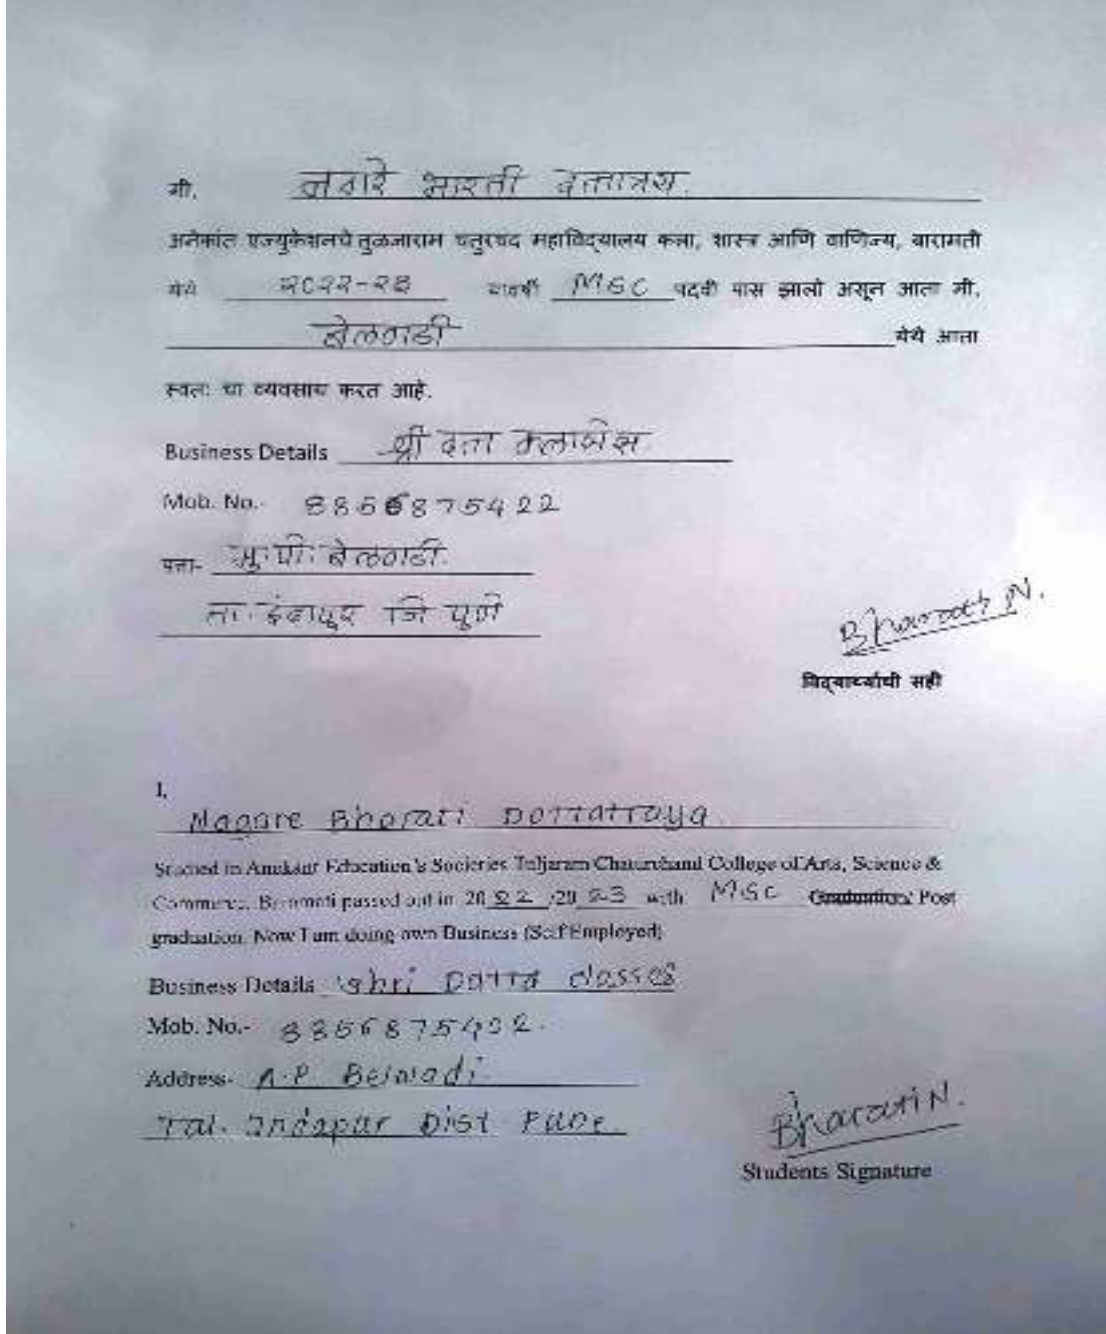 मी, नगारे भारती दत्तात्रय.
अनेकांत एज्युकेशनचे तुळजाराम चतुरचंद महाविद्यालय कला, शास्त्र आणि वाणिज्य, बारामती
येथे २०२२-२३ यावर्षी MSC पदवी पास झालो असून आता मी,
बेलवाडी येथे आता
स्वतः चा व्यवसाय करत आहे.
Business Details श्री दत्त क्लासेस
Mob. No.- 8856875422
पत्ता- मु.पो. बेलवाडी.
ता. इंदापूर जि पुणे
Bharati N.
विद्यार्थ्याची सही
I,
Nagare Bharati Dattatraya
Studied in Anekant Education's Societies Tuljaram Chaturchand College of Arts, Science &
Commerce, Baramati passed out in 2022/2023 with MSC Graduation/ Post
graduation. Now I am doing own Business (Self Employed)
Business Details Shri Datta classes
Mob. No.- 8856875422.
Address- A.P. Belwadi.
Tal. Indapur Dist Pune.
Bharati N.
Students Signature